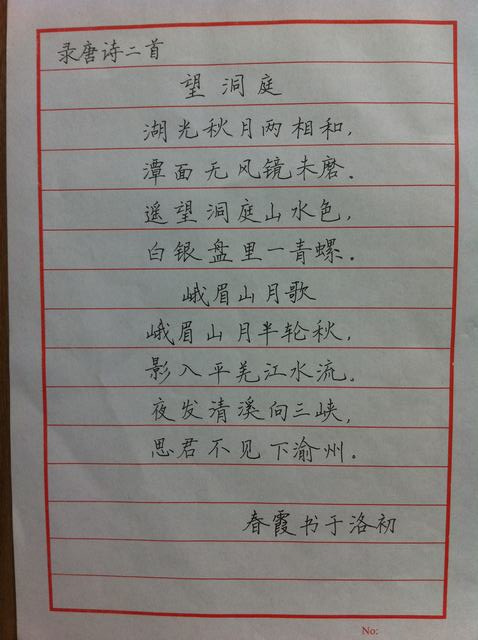 录唐诗二首
望洞庭
湖光秋月两相和,
潭面无风镜未磨.
遥望洞庭山水色,
白银盘里一青螺.
峨眉山月歌
峨眉山月半轮秋,
影入平羌江水流.
夜发清溪向三峡,
思君不见下渝州.
春霞书于洛初
No: